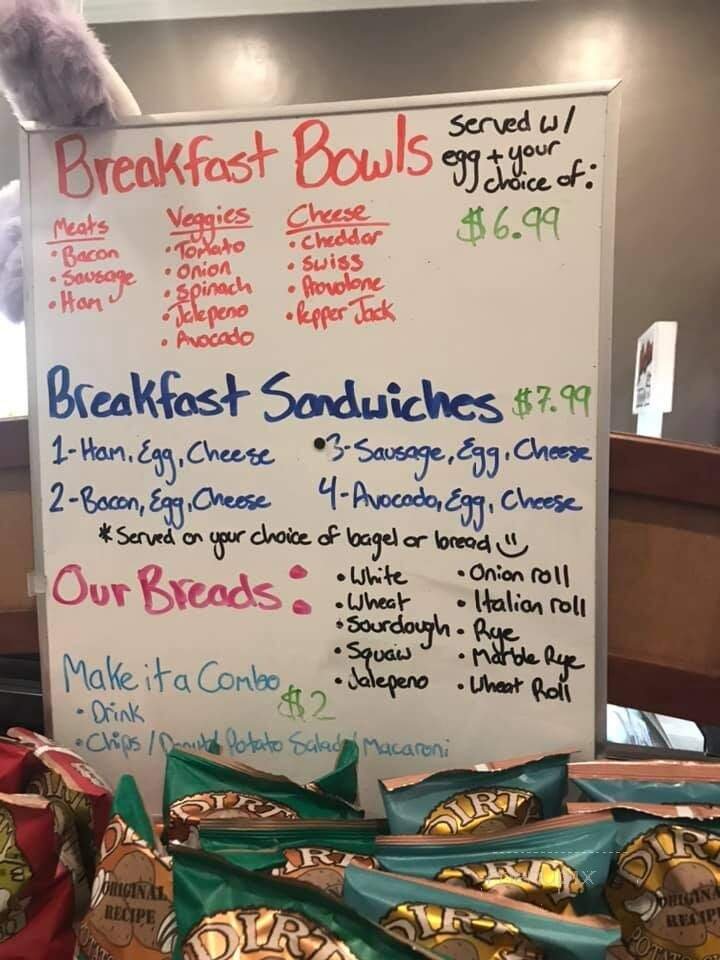 Breakfast Bowls served w/
egg + your
choice of:
$6.99
Meats
• Bacon
• Sausage
• Ham
Veggies
• Tomato
• Onion
• Spinach
• Jalepeno
• Avocado
Cheese
• Cheddar
• Swiss
• Provolone
• Pepper Jack
Breakfast Sandwiches $7.99
1-Ham, Egg, Cheese
2-Bacon, Egg, Cheese
3-Sausage, Egg, Cheese
4-Avocado, Egg, Cheese
* Served on your choice of bagel or bread
Our Breads:
• White
• Wheat
• Sourdough
• Squaw
• Jalepeno
• Onion roll
• Italian roll
• Rye
• Marble Rye
• Wheat Roll
Make it a Combo $2
• Drink
• Chips / Donut / Potato Salad / Macaroni
DIRTY
DIRTY
DIRTY
DIRTY
DIRTY
ORIGINAL
RECIPE
ORIGINAL
RECIPE
POTATO
DIRTY
DIRTY